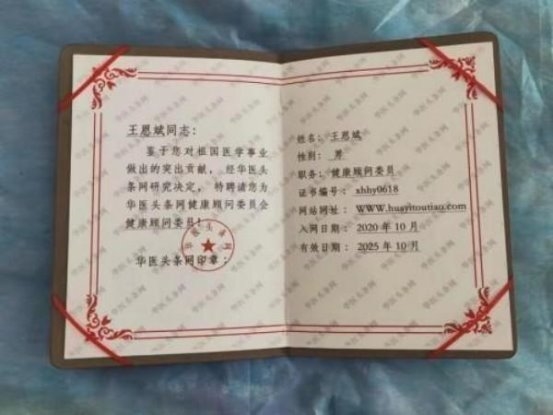 王恩斌同志：
鉴于您对祖国医学事业
做出的突出贡献，经华医头
条网研究决定，特聘请您为
华医头条网健康顾问委员会
健康顾问委员！
华医头条网印章：
华医头条网
姓名：王恩斌
性别：男
职务：健康顾问委员
证书编号：xhhy0618
网站网址：WWW.huayitoutiau.com
入网日期：2020年10月
有效日期：2025年10月